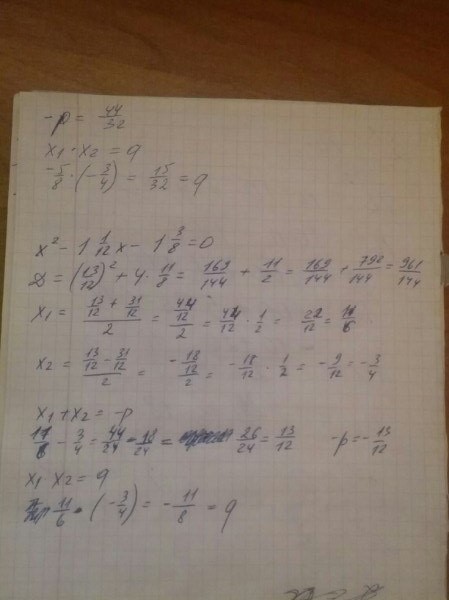 -p = -44/32
x1 · x2 = q
-5/8 · (-3/4) = 15/32 = q
x² - 1 1/12 x - 1 3/8 = 0
D = (13/12)² + 4 · 11/8 = 169/144 + 11/2 = 169/144 + 792/144 = 961/144
x1 = (13/12 + 31/12)/2 = (44/12)/2 = 44/12 · 1/2 = 22/12 = 11/6
x2 = (13/12 - 31/12)/2 = (-18/12)/2 = -18/12 · 1/2 = -9/12 = -3/4
x1 + x2 = -p
11/6 - 3/4 = 44/24 - 18/24 = 26/24 = 13/12 -p = -13/12
x1 x2 = q
11/6 · (-3/4) = -11/8 = q